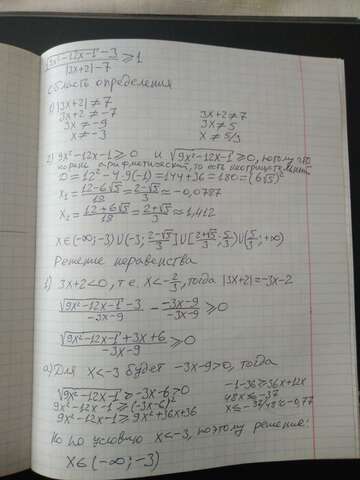 (√(9x²-12x-1) - 3)/(|3x+2|-7) ≥ 1
Область определения
1) |3x+2| ≠ 7
3x+2 ≠ -7 3x+2 ≠ 7
3x ≠ -9 3x ≠ 5
x ≠ -3 x ≠ 5/3
2) 9x²-12x-1 ≥ 0 и √(9x²-12x-1) ≥ 0, потому что
корень арифметический, то есть неотрицательный
D = 12² - 4·9(-1) = 144+36 = 180 = (6√5)²
x₁ = (12-6√5)/18 = (2-√5)/3 ≈ -0,0787
x₂ = (12+6√5)/18 = (2+√5)/3 ≈ 1,412
x∈(-∞;-3)∪(-3; (2-√5)/3]∪[(2+√5)/3; 5/3)∪(5/3; +∞)
Решение неравенства
1) 3x+2<0, т.е. x<-2/3, тогда |3x+2| = -3x-2
(√(9x²-12x-1) - 3)/(-3x-9) - (-3x-9)/(-3x-9) ≥ 0
(√(9x²-12x-1) + 3x+6)/(-3x-9) ≥ 0
а) Для x<-3 будет -3x-9>0, тогда
√(9x²-12x-1) ≥ -3x-6 > 0 -1-36 ≥ 36x+12x
9x²-12x-1 ≥ (-3x-6)² 48x ≤ -37
9x²-12x-1 ≥ 9x²+36x+36 x ≤ -37/48 ≈ -0,77
Но по условию x<-3, поэтому решение:
x∈(-∞;-3)